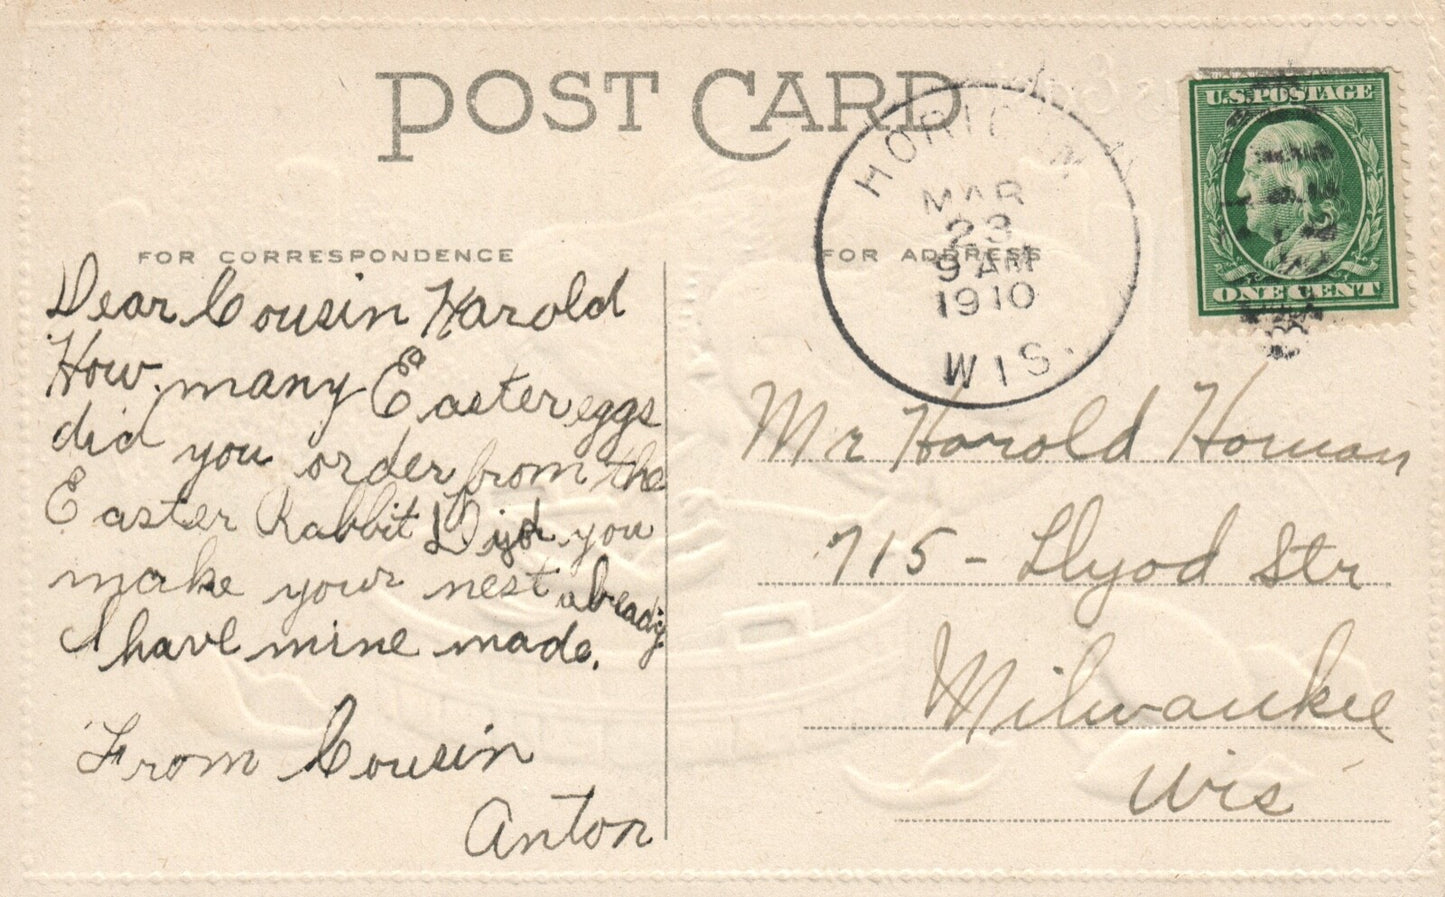 POST CARD
FOR CORRESPONDENCE
FOR ADDRESS
HORICON
MAR
23
9 AM
1910
WIS.
U.S. POSTAGE
ONE CENT
Dear Cousin Harold
How many Easter eggs
did you order from the
Easter Rabbit Did you
make your nest already
I have mine made.
From Cousin
Anton
Mr Harold Homan
715 - Llyod Str
Milwaukee
Wis